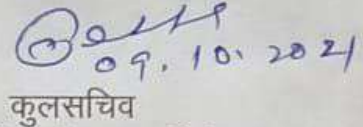 09.10.2021
कुलसचिव